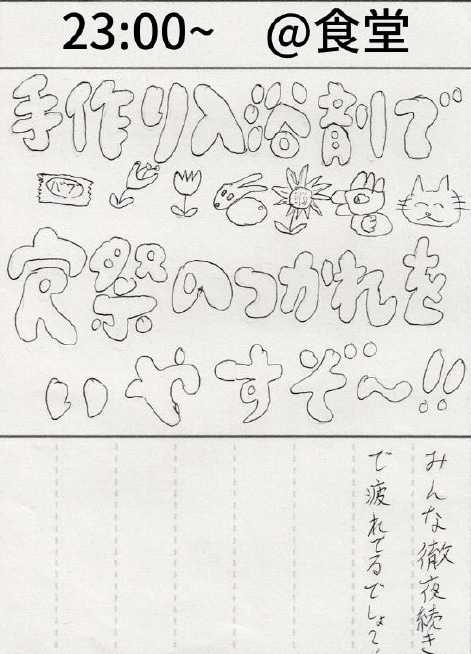 23:00~ @食堂
手作り入浴剤で
バブ
寮祭のつかれを
いやすぞ〜!!
みんな徹夜続き
で疲れてるでしょ?